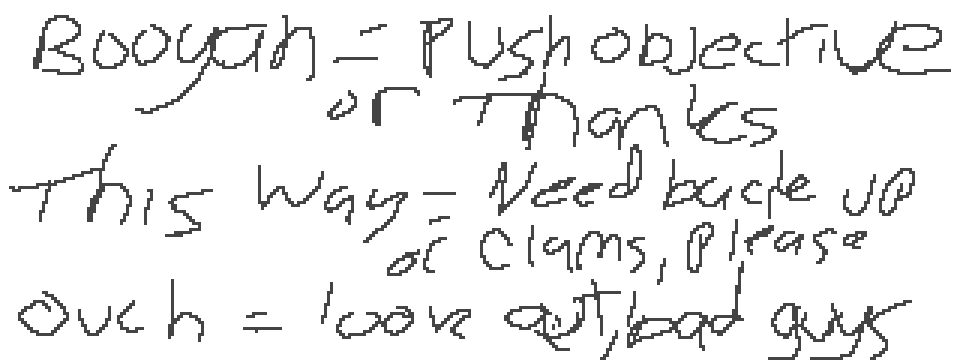 Booyah = Push objective
or Thanks
This Way = Need back up
or Clams, Please
Ouch = look out, bad guys